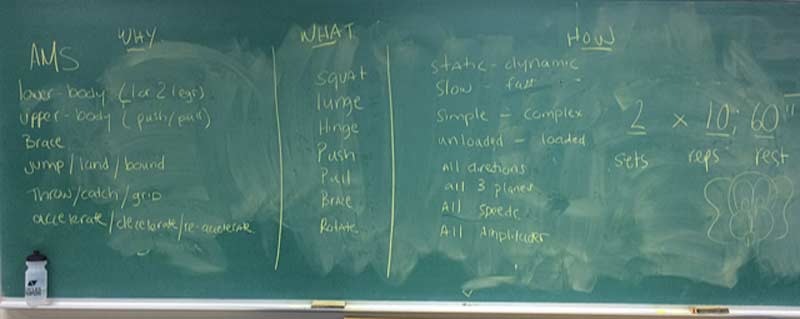 WHY
AMS
lower-body (1 or 2 legs)
upper-body (push/pull)
Brace
Jump/land/bound
Throw/catch/grip
accelerate/decelerate/re-accelerate
WHAT
squat
lunge
Hinge
Push
Pull
Brace
Rotate
HOW
static - dynamic
Slow - fast
Simple - complex
unloaded - loaded
All directions
all 3 planes
All speeds
All Amplitudes
2 x 10; 60"
sets reps rest